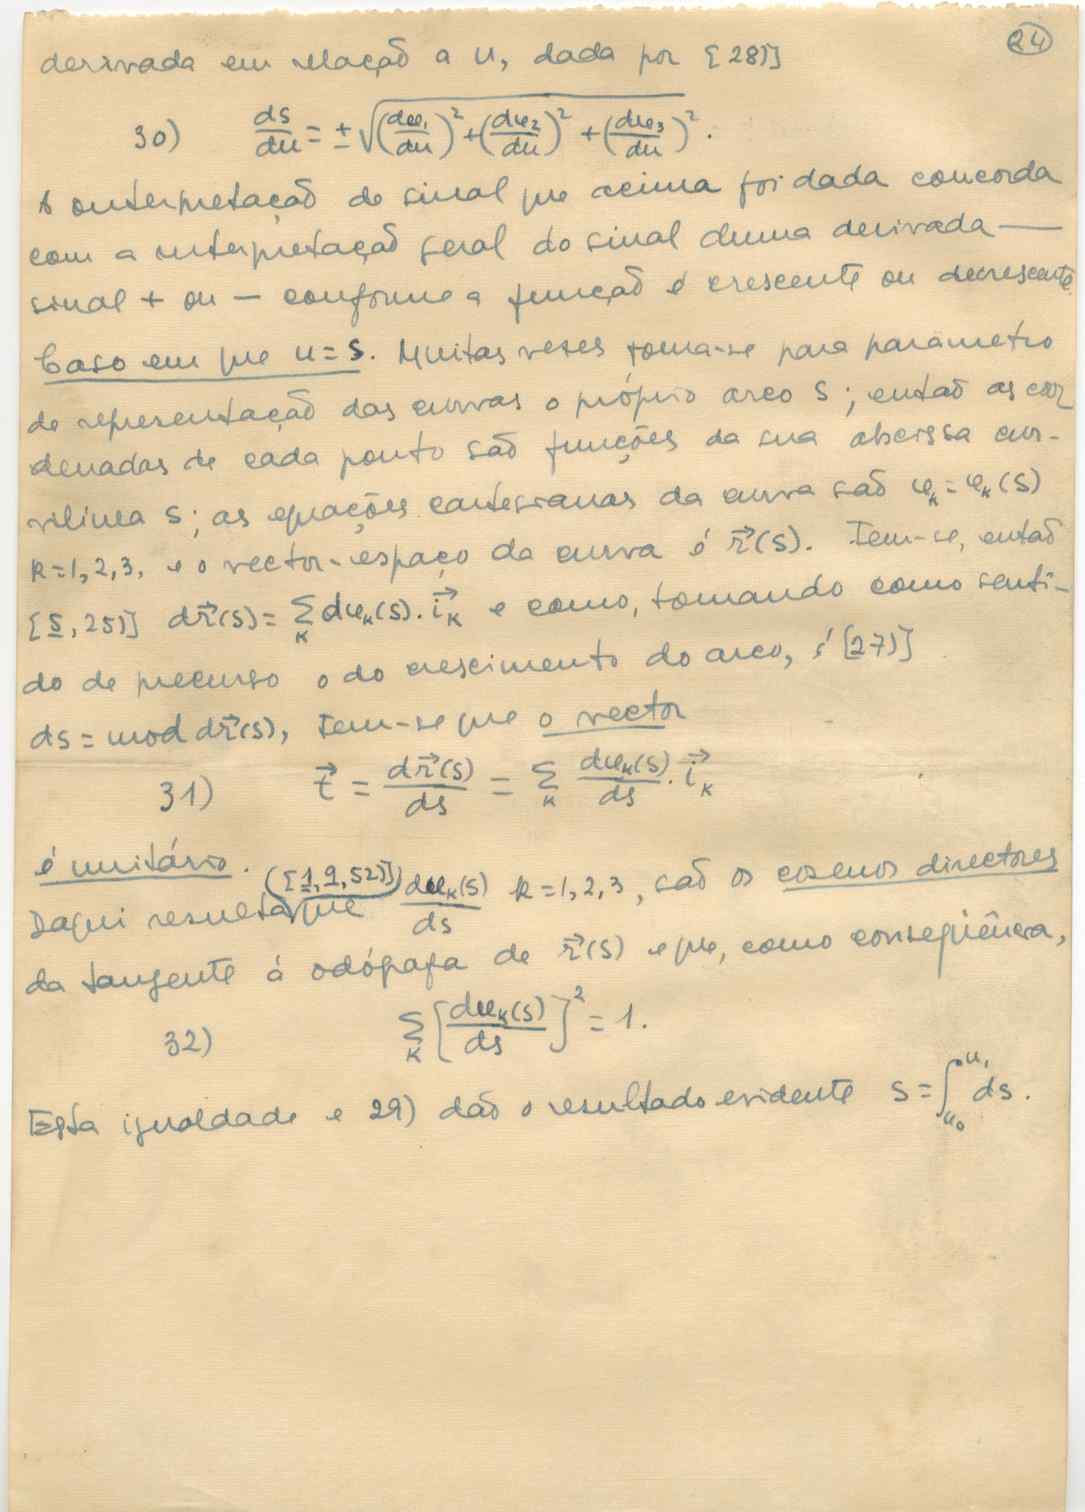 24
derivada em relação a u, dada por [28)]
30) ds/du = ± √((dφ₁/du)² + (dφ₂/du)² + (dφ₃/du)²).
A interpretação de sinal que acima foi dada concorda
com a interpretação geral do sinal duma derivada —
sinal + ou — conforme a função é crescente ou decrescente.
Caso em que u = s. Muitas vezes toma-se para parâmetro
de representação das curvas o próprio arco s; então as coor
denadas de cada ponto são funções da sua abcissa cur-
vilínea s; as equações cartesianas da curva são φₖ = φₖ(s)
k = 1, 2, 3, e o vector-espaço da curva é r⃗(s). Tem-se, então
[5, 25)] dr⃗(s) = Σₖ dφₖ(s). i⃗ₖ e como, tomando como senti-
do de precurso o do crescimento do arco, é [27)]
ds = mod dr⃗(s), tem-se que o vector
31) t⃗ = dr⃗(s)/ds = Σₖ dφₖ(s)/ds . i⃗ₖ
é unitário.
Daqui resulta ([1, 9, 52)]) que dφₖ(s)/ds k = 1, 2, 3, são os cosenos directores
da tangente à odógrafa de r⃗(s) e que, como conseqüência,
32) Σₖ [dφₖ(s)/ds]² = 1.
Esta igualdade e 29) dão o resultado evidente s = ∫ᵤ₀ᵘ¹ ds.